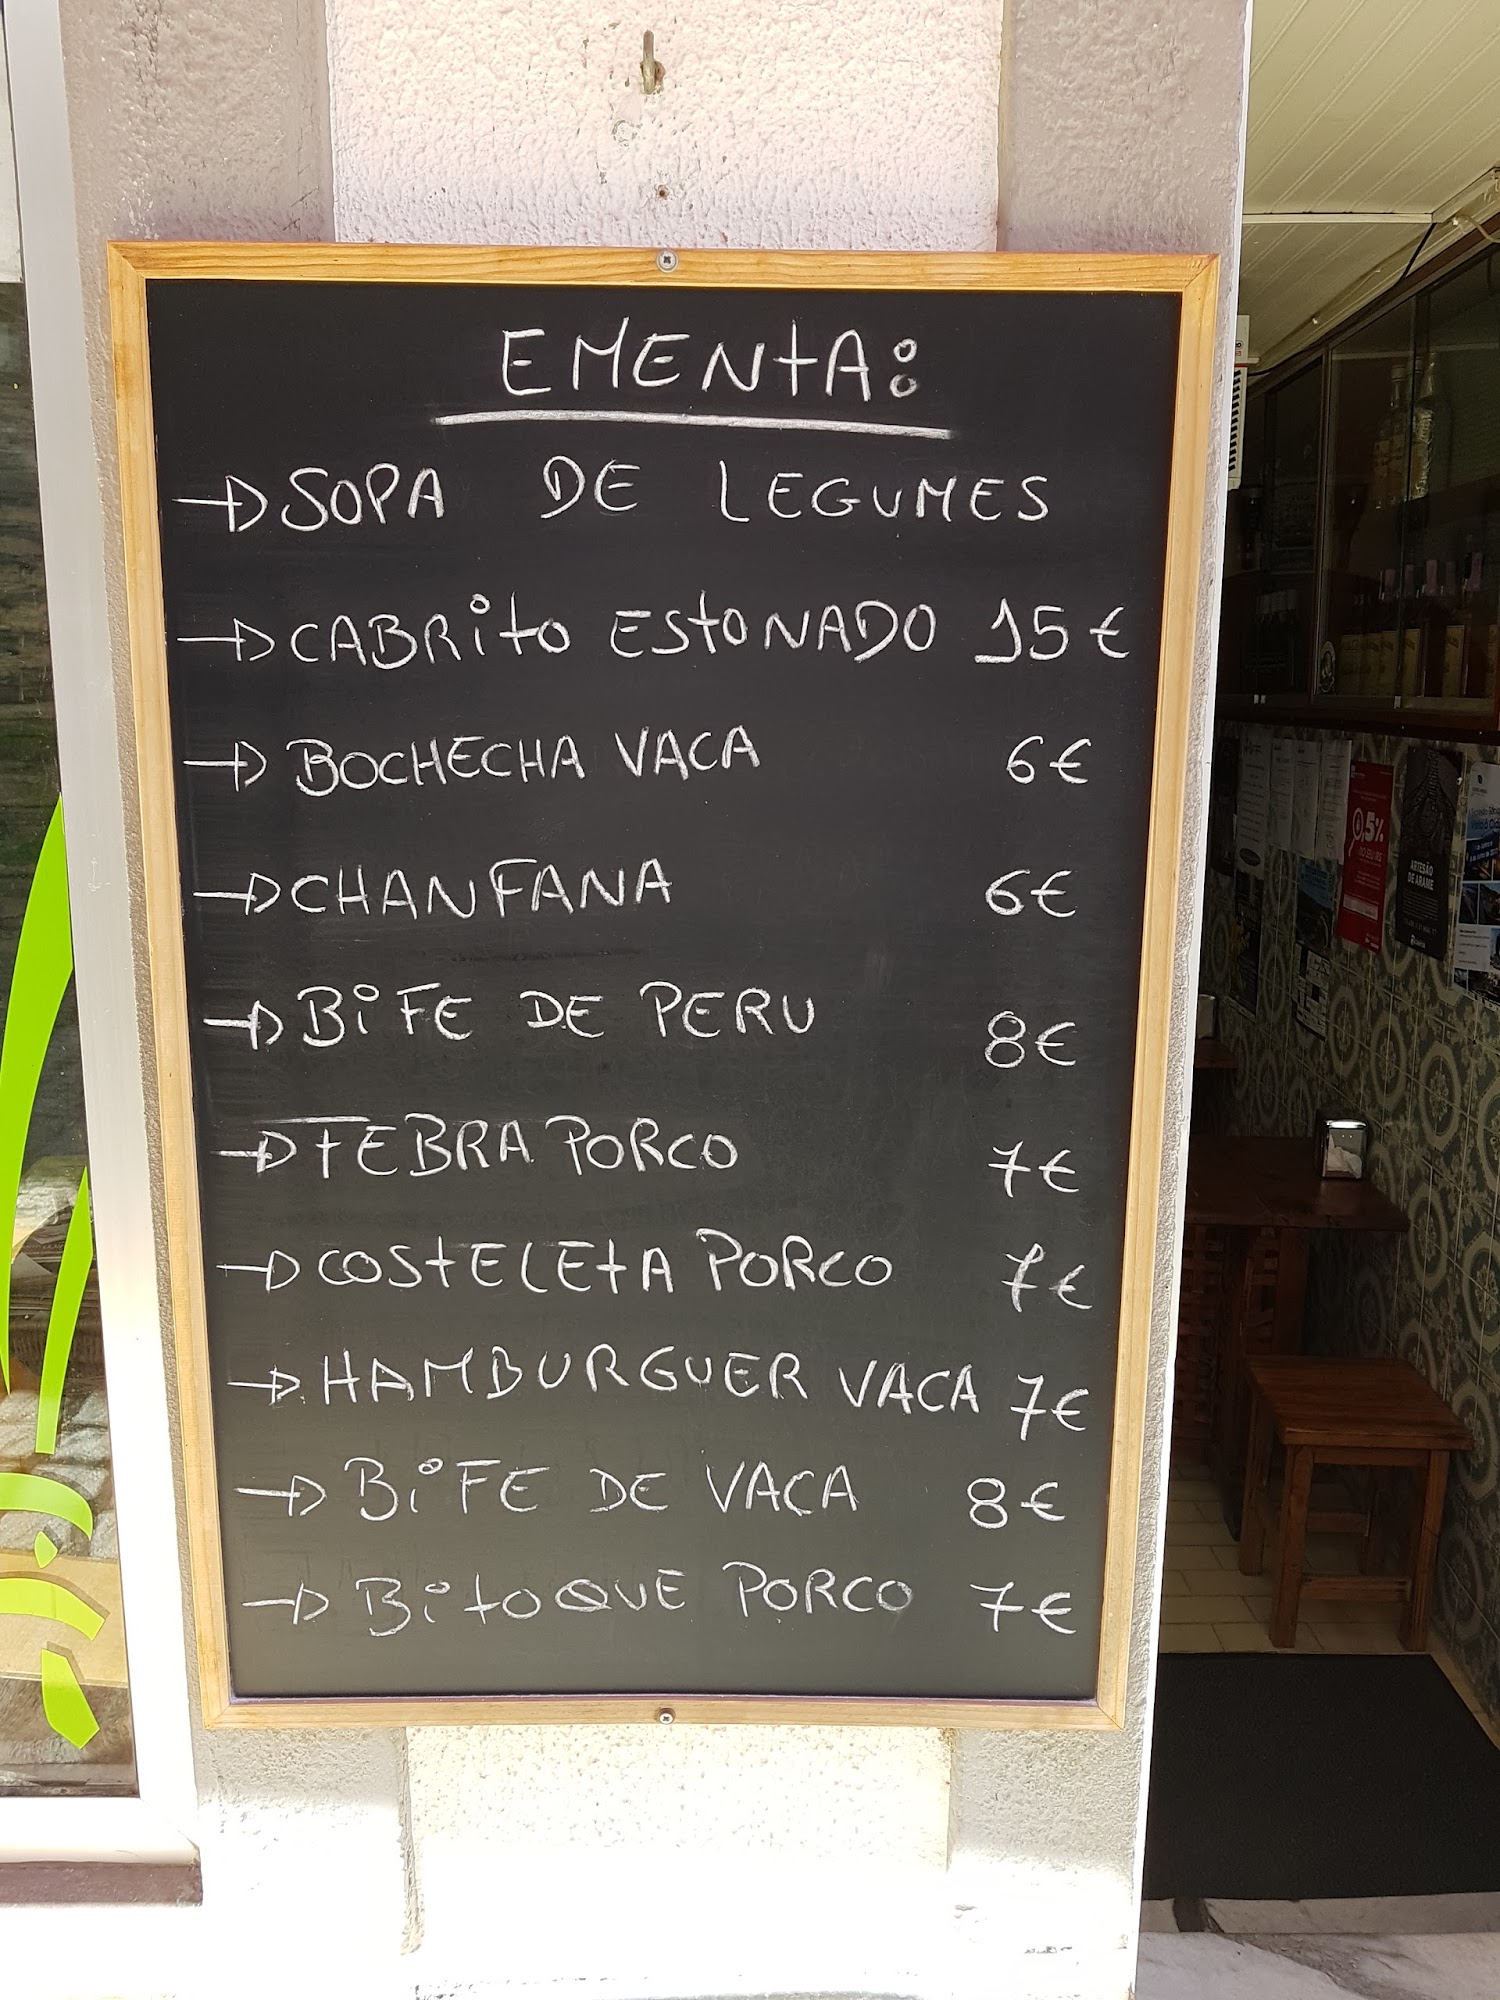 EMENTA:
SOPA DE LEGUMES
CABRITO ESTONADO 15€
BOCHECHA VACA 6€
CHANFANA 6€
BIFE DE PERU 8€
FEBRA PORCO 7€
COSTELETA PORCO 7€
HAMBURGUER VACA 7€
BIFE DE VACA 8€
BITOQUE PORCO 7€
0,5%
ARTESÃO
DE ARAME